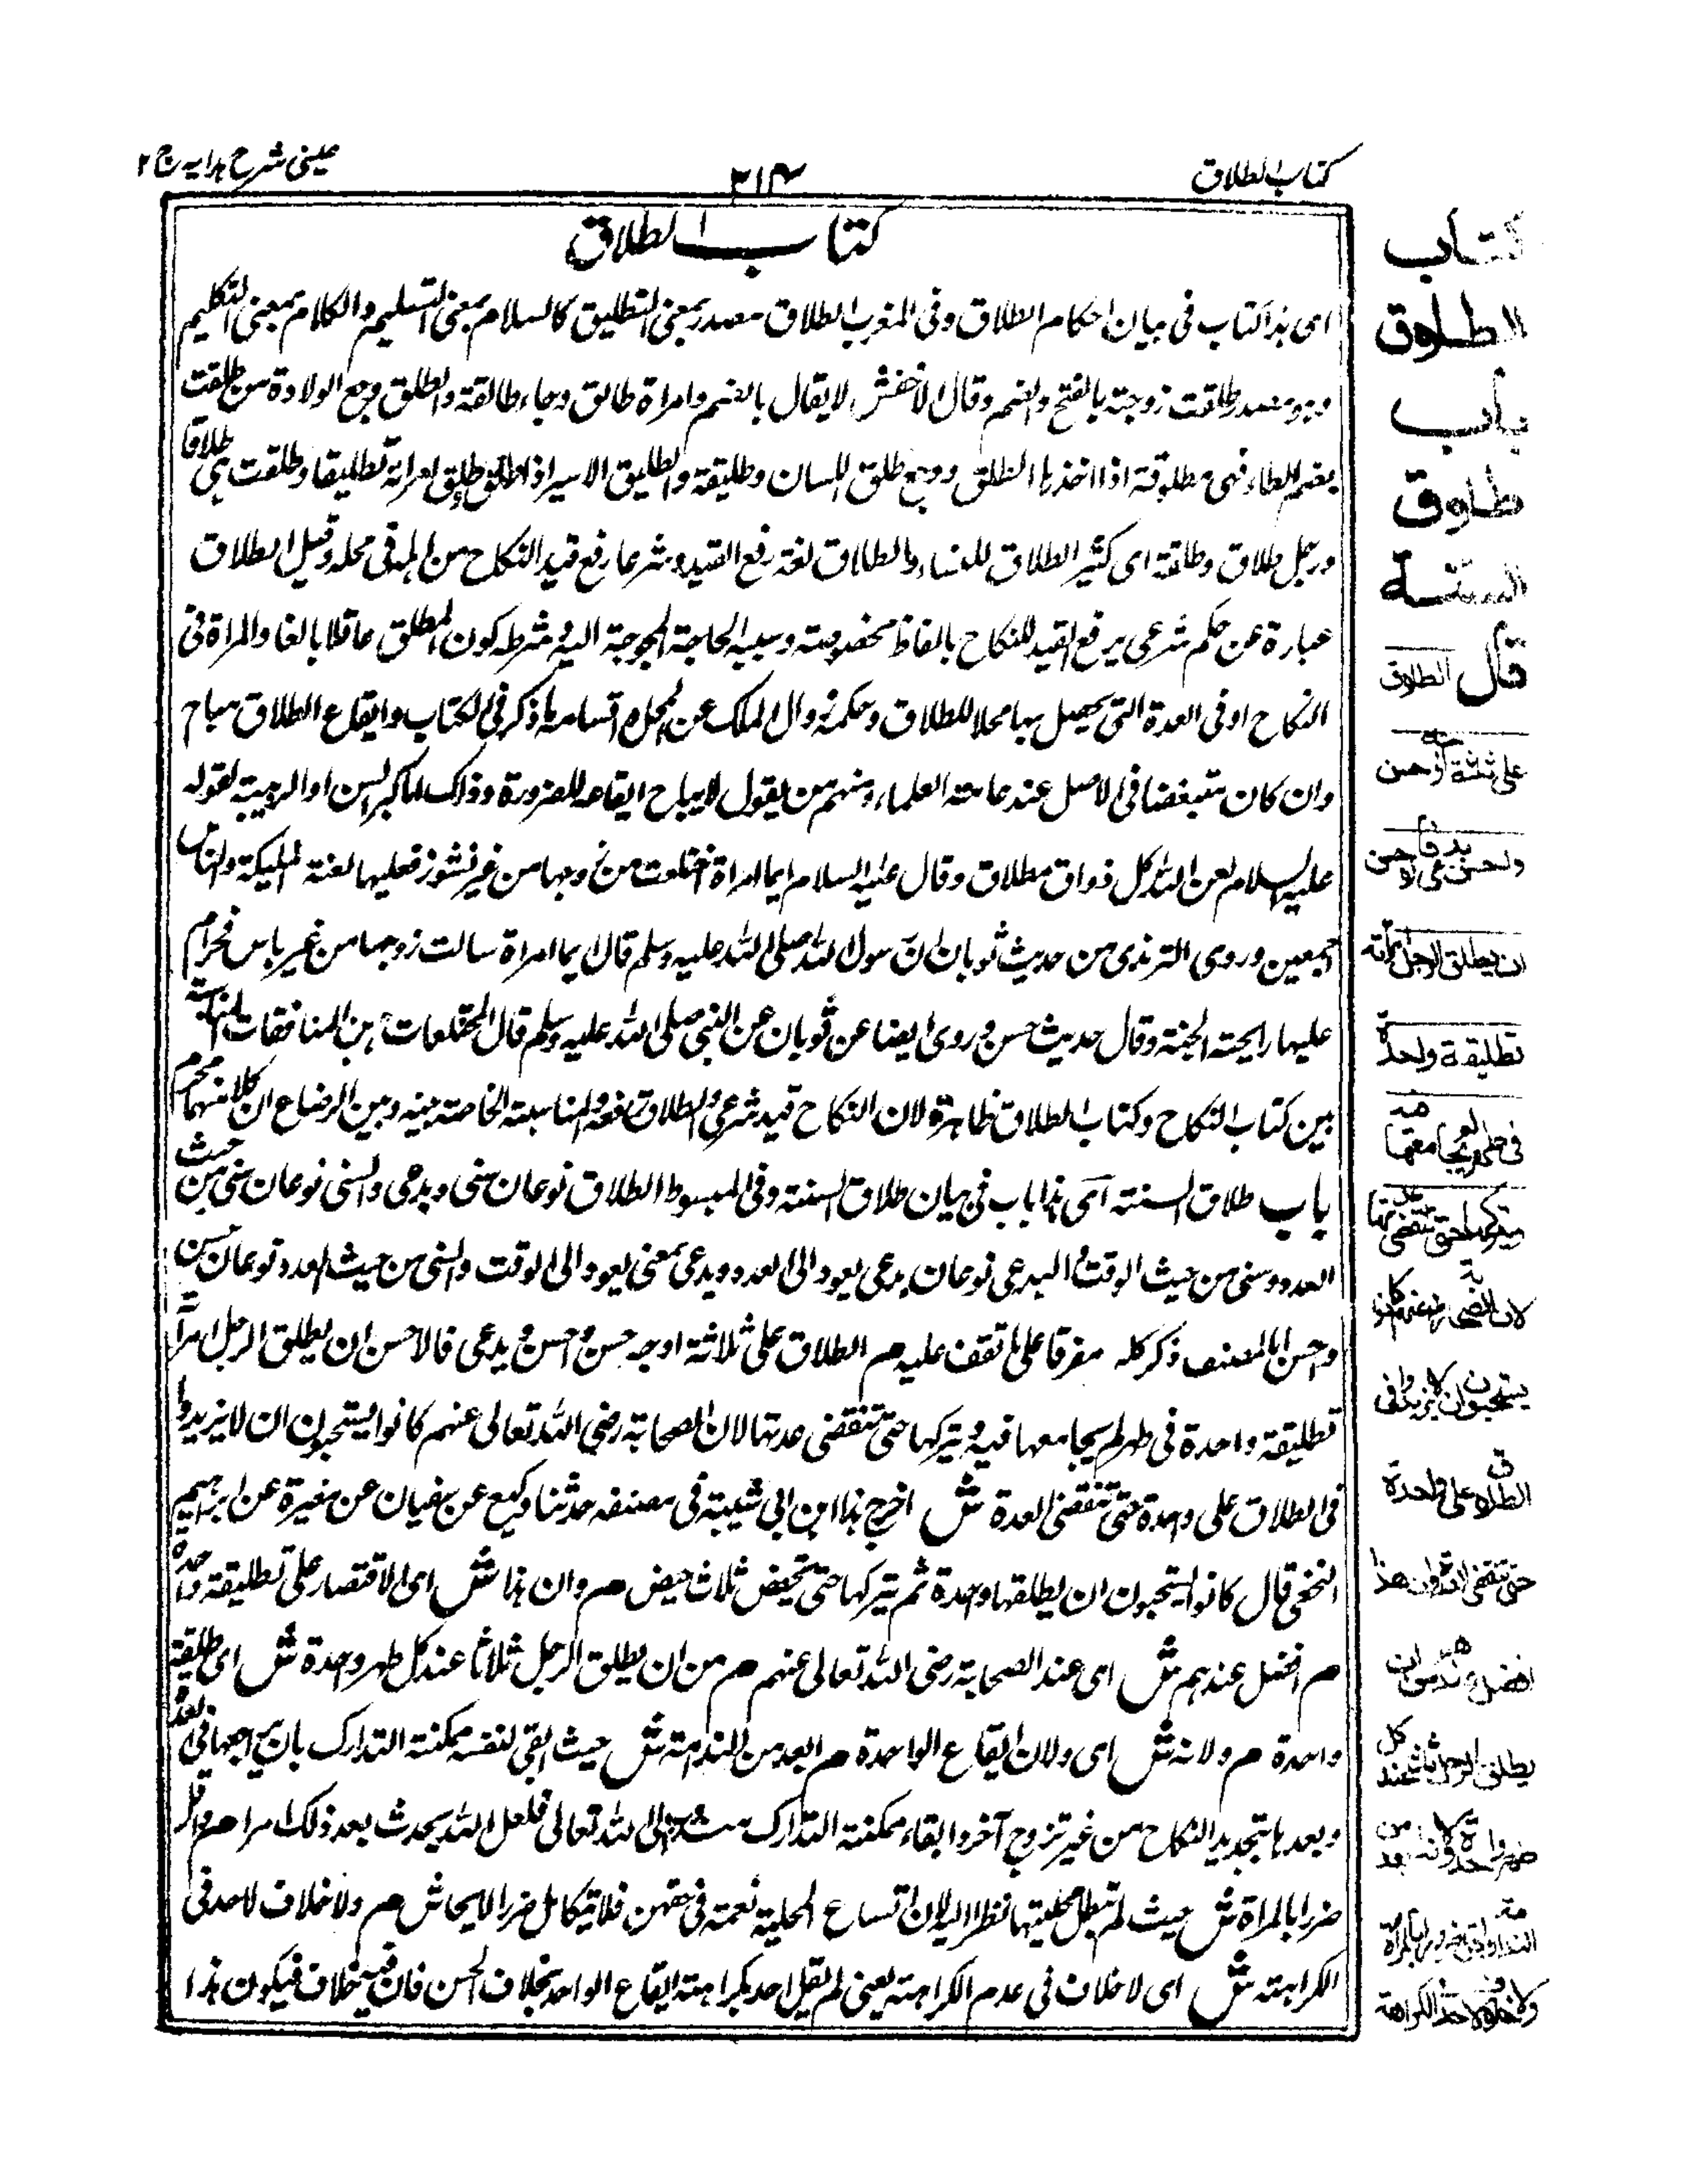 كتاب الطلاق
٣١٤
عينى شرح هدايه ج ٢
كتاب الطلاق
اى هذا كتاب فى بيان احكام الطلاق وفى المغرب الطلاق مصدر بمعنى التطليق كالسلام بمعنى التسليم والكلام بمعنى التكليم
وهو مصدر طلقت زوجته بالفتح والضم وقال الاخفش لا يقال بالضم وامراة طالق وجاء طالقة والطلق وجع الولادة من طلقت
بضم الطاء فهى مطلوقة اذا اخذها الطلق ورجع طلق اللسان وطليقة والطليق الاسير اذا اطلق طلق امراته تطليقا وطلقت هى طلاقا
ورجل طلاق وطلقة اى كثير الطلاق للنساء والطلاق لغة رفع القيد وشرعا رفع قيد النكاح من اهله فى محله وقيل الطلاق
عبارة عن حكم شرعى يرفع القيد للنكاح بالفاظ مخصوصة وسببه الحاجة المحوجة اليه وشرطه كون المطلق عاقلا بالغا والمراة فى
النكاح او فى العدة التى يحصل بها محلا للطلاق وحكمه زوال الملك عن المحل واقسامه ما ذكر فى الكتاب وايقاع الطلاق مباح
وان كان مبغضا فى الاصل عند عامة العلماء ومنهم من يقول لا يباح ايقاعه الا لضرورة وذلك اما كبر السن او الريبة لقوله
عليه السلام لعن الله كل ذواق مطلاق وقال عليه السلام ايما امراة اختلعت من زوجها من غير نشوز فعليها لعنة الله والمليكة والناس
اجمعين وروى الترمذى من حديث ثوبان ان رسول الله صلى الله عليه وسلم قال ايما امراة سالت زوجها من غير باس فحرام
عليها رايحة الجنة وقال حديث حسن وروى ايضا عن ثوبان عن النبى صلى الله عليه وسلم قال المختلعات هن المنافقات المناسبة
بين كتاب النكاح وكتاب الطلاق ظاهرة لان النكاح قيد شرعى والطلاق رفعه والمناسبة الخاصة بينه وبين الرضاع ان كلا منهما محرم
باب طلاق السنة اى هذا باب فى بيان طلاق السنة وفى المبسوط الطلاق نوعان سنى وبدعى والسنى نوعان سنى من حيث
العدد وسنى من حيث الوقت والبدعى نوعان بدعى يعود الى العدد وبدعى بمعنى يعود الى الوقت والسنى من حيث العدد نوعان حسن
واحسن والمصنف ذكر كله مفرقا على ما تقف عليه م الطلاق على ثلاثة اوجه حسن واحسن وبدعى فالاحسن ان يطلق الرجل امراته
تطليقة واحدة فى طهر لم يجامعها فيه ويتركها حتى تنقضى عدتها لان الصحابة رضى الله تعالى عنهم كانوا يستحبون ان لا يزيدوا
فى الطلاق على واحدة حتى تنقضى العدة ش اخرج هذا ابن ابى شيبة فى مصنفه حدثنا وكيع عن سفيان عن مغيرة عن ابراهيم
النخعى قال كانوا يستحبون ان يطلقها واحدة ثم يتركها حتى تحيض ثلاث حيض م وان هذا ش اى الاقتصار على تطليقة واحدة
م افضل عندهم ش اى عند الصحابة رضى الله تعالى عنهم م من ان يطلق الرجل ثلاثا عند كل طهر واحدة ش اى طليقة
واحدة م ولانه ش اى ولان ايقاع الواحدة م ابعد من الندامة ش حيث ابقى لنفسه مكنة التدارك بان يراجعها فى العدة
وبعدها بتجديد النكاح من غير تزوج آخر وابقاء مكنة التدارك الى الله تعالى فلعل الله يحدث بعد ذلك امرا م واقل
ضررا بالمراة ش حيث لم تبطل محليتها نظرا اليه لان اتساع المحلية نعمة فى حقهن فلا يتكامل ضرر الايحاش م ولا خلاف لاحد فى
الكراهة ش اى لا خلاف فى عدم الكراهة يعنى لم يقل احد بكراهة ايقاع الواحدة بخلاف الحسن فان فيه خلاف فيكون هذا
كتاب
الطلاق
باب
طلاق
السنة
قال الطلاق
على ثلثة اوجه حسن
واحسن وبدعى فالاحسن
ان يطلق الرجل امرأته
تطليقة واحدة
فى طهر لم يجامعها فيه
ويتركها حتى تنقضى عدتها
لان الصحابة رضى الله عنهم كانوا
يستحبون ان لا يزيدوا فى
الطلاق على واحدة
حتى تنقضى العدة وان هذا
افضل عندهم من ان
يطلق الرجل ثلثا عند كل
طهر واحدة ولانه ابعد من
الندامة واقل ضررا بالمرأة
ولا خلاف لاحد فى الكراهة